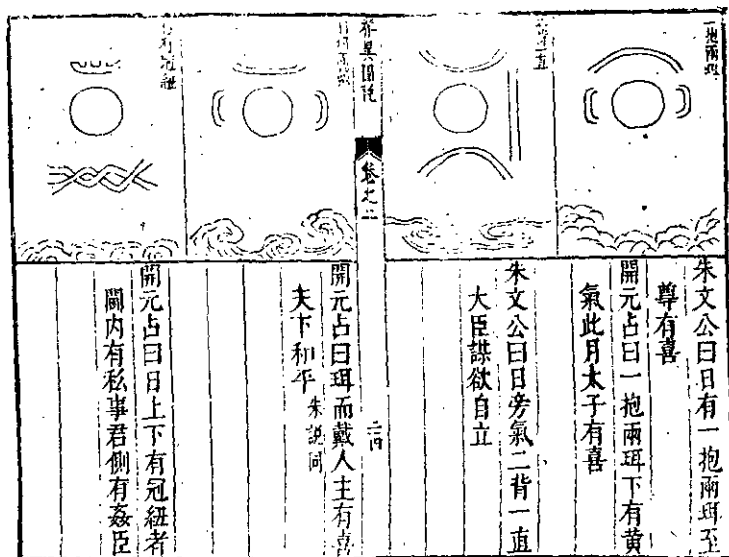 一抱兩珥
朱文公曰日有一抱兩珥至
尊有喜
開元占曰一抱兩珥下有黄
氣此月太子有喜
朱文公曰日旁氣二背一直
大臣謀欲自立
卷之
開元占曰珥而戴人主有喜
天下和平 朱說同
冠紐
開元占曰日上下有冠紐者
關内有私事君側有姦臣